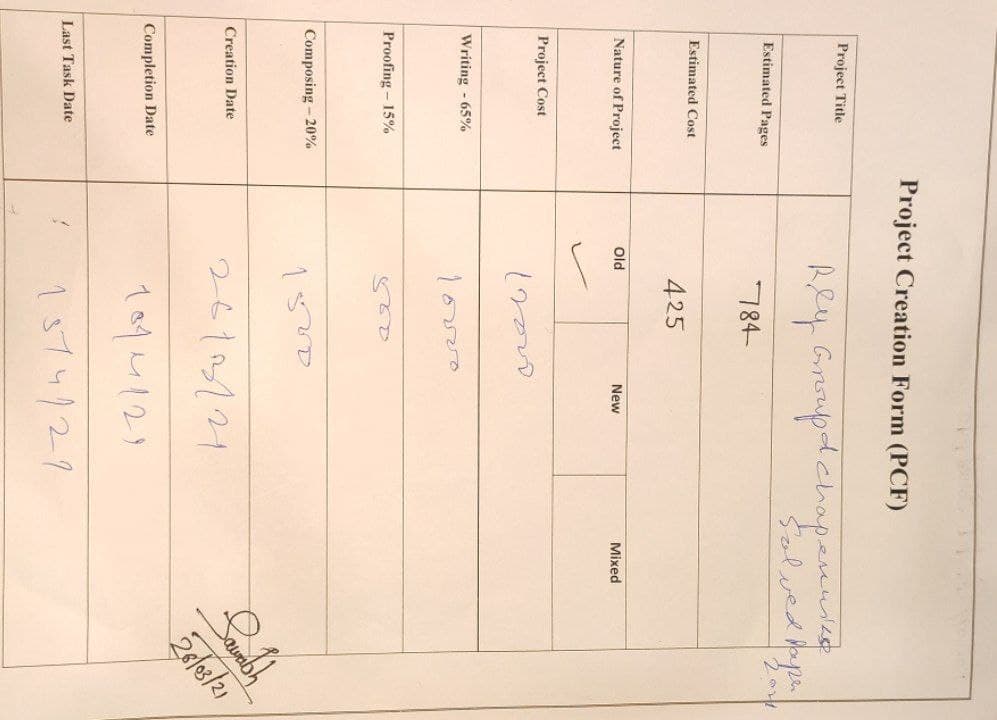 Project Creation Form (PCF)
Project Title Rly Group d chapterwise
Solved Paper
2021
Estimated Pages 784
Estimated Cost 425
Nature of Project Old New Mixed
✓
Project Cost 12000
Writing - 65% 10000
Proofing – 15% 500
Composing – 20% 1500
Creation Date 26/03/21
Completion Date 10/4/21
Last Task Date 15/4/21
Saurabh
26/03/21